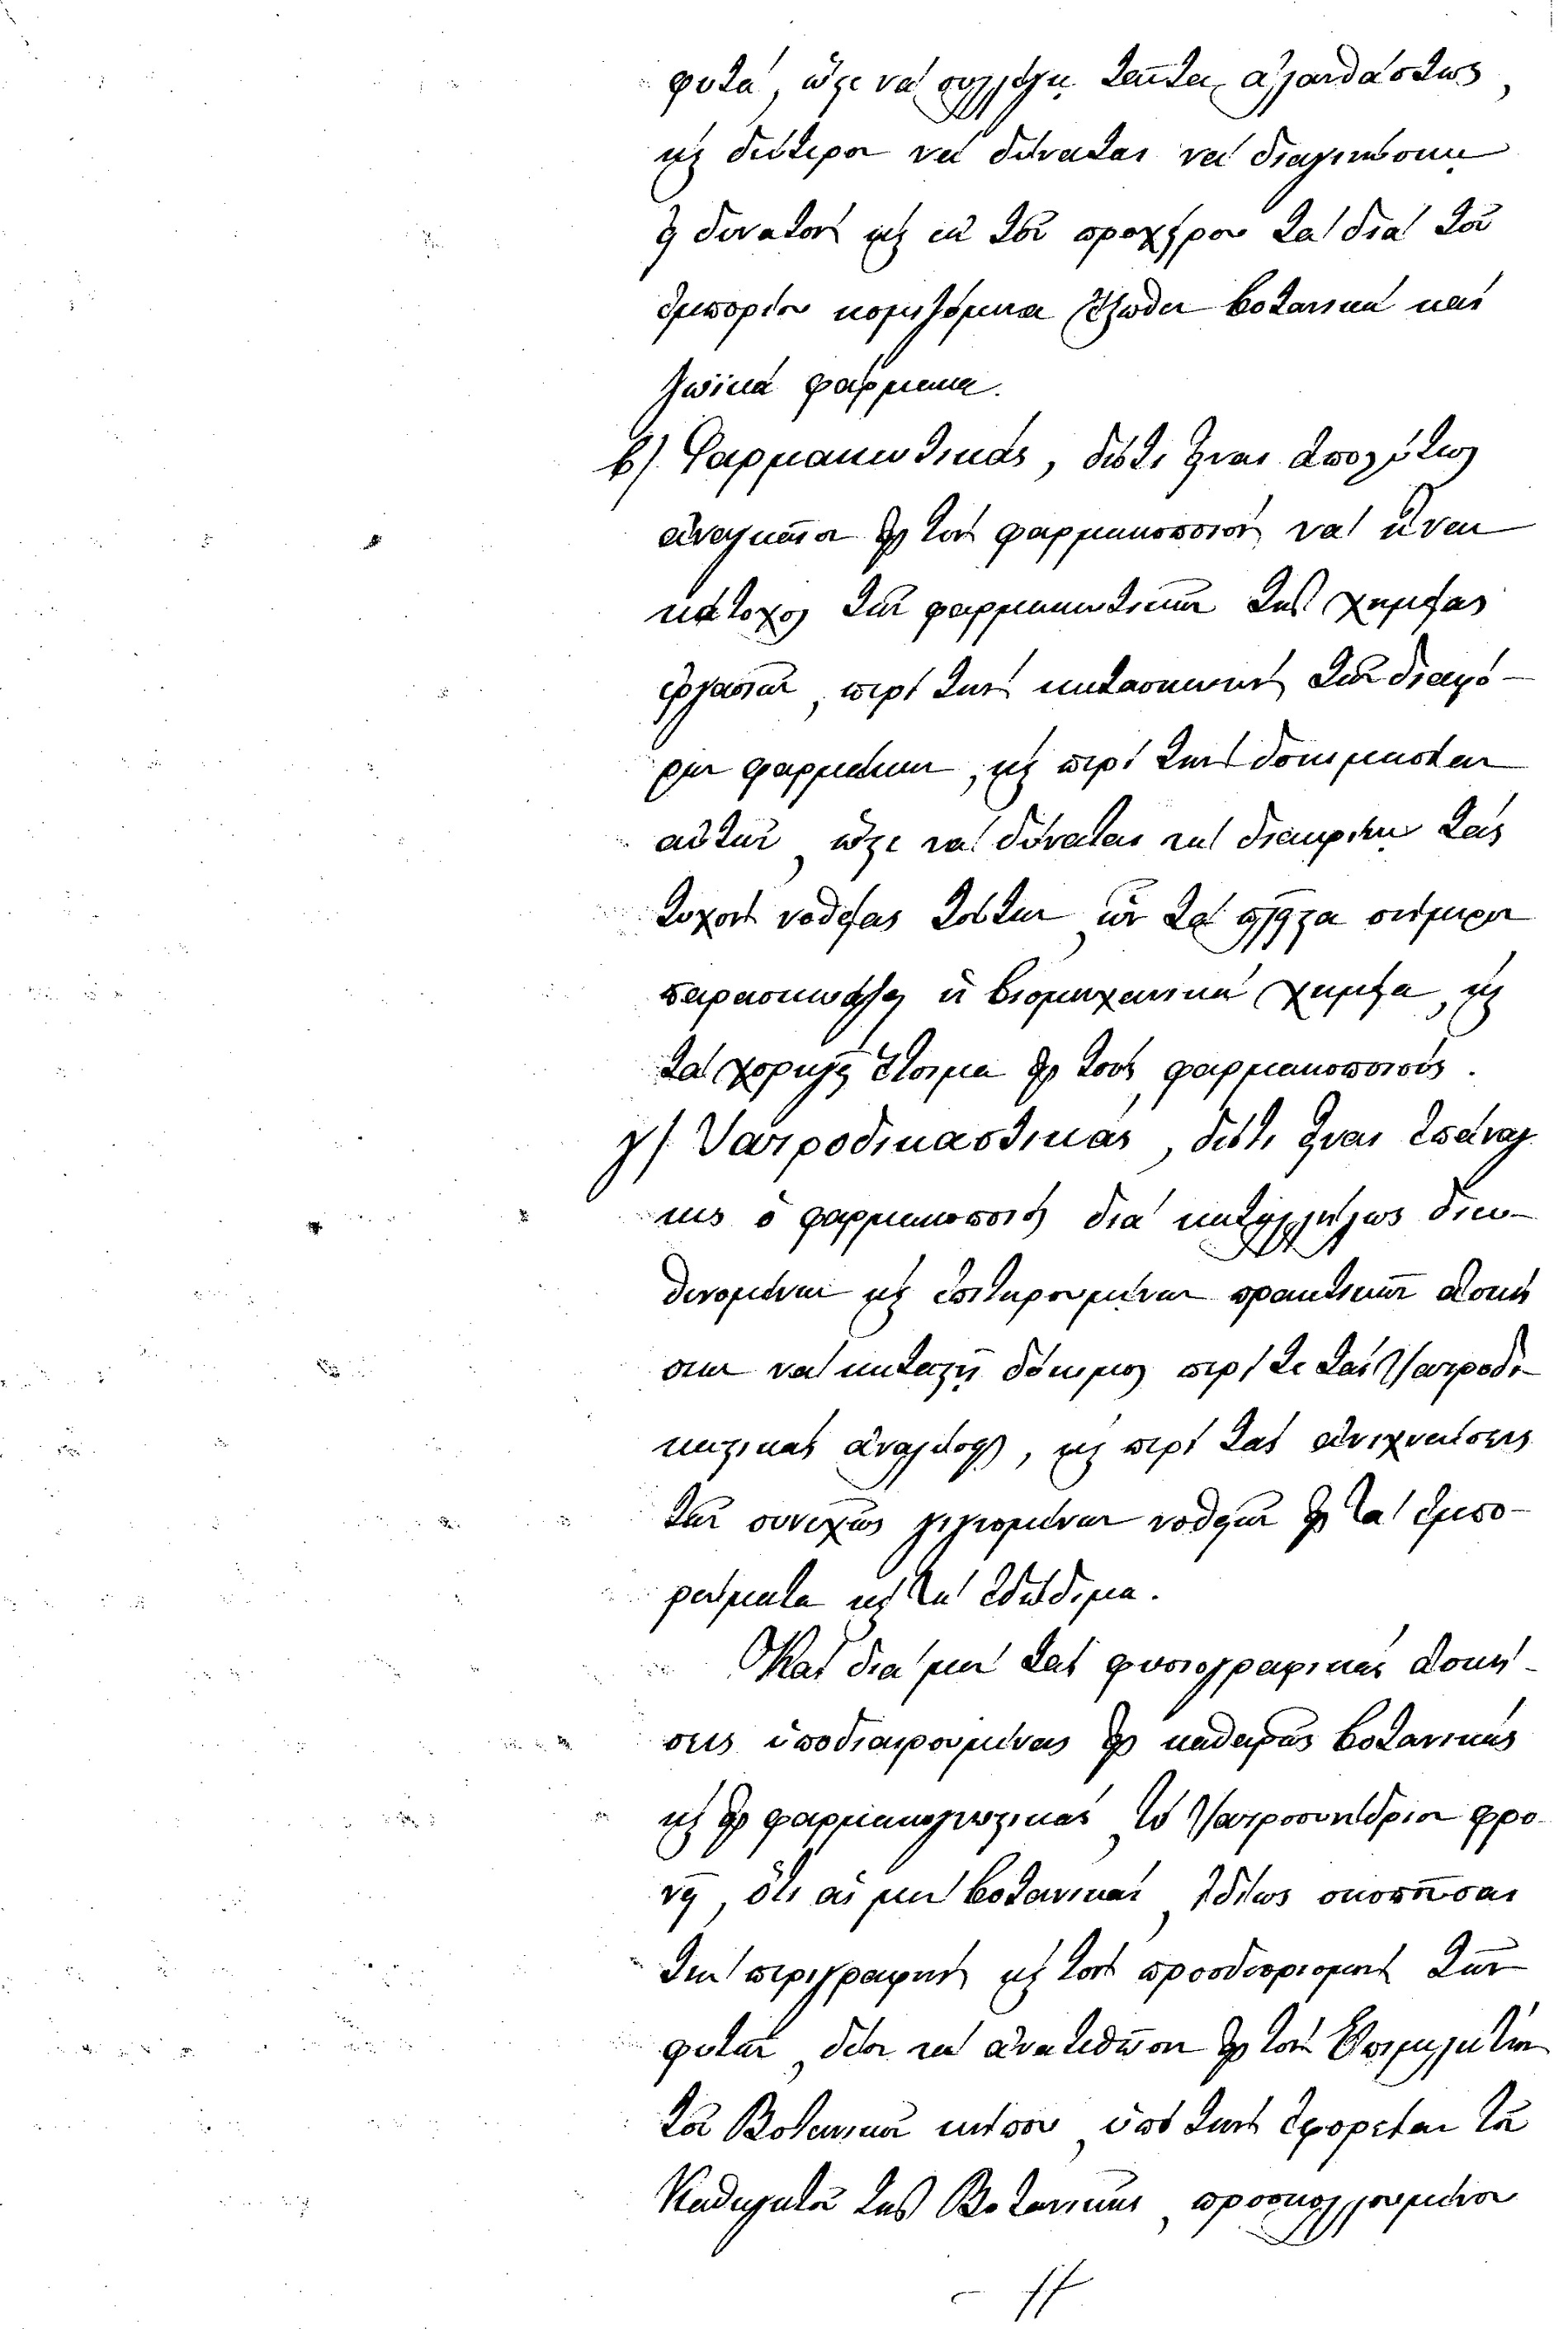 φυτά, ὥστε νά συλλέγῃ ταῦτα ἀλανθάστως,
καί δεύτερον νά δύναται νά διαγινώσκῃ
εἰ δυνατόν καί ἐκ τοῦ προχείρου τά διά τοῦ
ἐμπορίου κομιζόμενα ἔξωθεν βοτανικά καί
ζωϊκά φάρμακα.
β) Φαρμακευτικάς, διότι εἶναι ἀπολύτως
ἀναγκαῖον εἰς τόν φαρμακοποιόν νά ᾖναι
κάτοχος τῶν φαρμακευτικῶν τῆς χημείας
ἐργασιῶν, περί τήν κατασκευήν τῶν διαφό-
ρων φαρμάκων, καί περί τήν δοκιμασίαν
αὐτῶν, ὥστε νά δύναται νά διακρίνῃ τάς
τυχόν νοθείας τούτων, ὧν τά πλεῖστα σήμερον
παρασκευάζει ἡ βιομηχανική χημεία, καί
τά χορηγεῖ ἕτοιμα εἰς τούς φαρμακοποιούς.
γ) Ἰατροδικαστικάς, διότι εἶναι ἐπάναγ
κες ὁ φαρμακοποιός διά καταλλήλως διευ-
θυνομένων καί ἐπιτηρουμένων πρακτικῶν ἀσκή
σεων νά καταστῇ δόκιμος περί τε τάς Ἰατροδι-
καστικάς ἀναλύσεις, καί περί τάς ἀνιχνεύσεις
τῶν συνεχῶς γιγνομένων νοθειῶν εἰς τά ἐμπο-
ρεύματα καί τά ἐδώδιμα.
Καί διά μέν τάς φυσιογραφικάς ἀσκή-
σεις ὑποδιαιρουμένας εἰς καθαρῶς βοτανικάς
καί εἰς φαρμακογνωστικάς, τό Ἰατροσυνέδριον φρο-
νεῖ, ὅτι αἱ μέν βοτανικαί, ἰδίως σκοποῦσαι
τήν περιγραφήν καί τόν προσδιορισμόν τῶν
φυτῶν, δέον νά ἀνατεθῶσιν εἰς τόν Ἐπιμελητήν
τοῦ Βοτανικοῦ κήπου, ὑπό τήν ἐφορείαν τοῦ
Καθηγητοῦ τῆς Βοτανικῆς, προσκολλουμένου